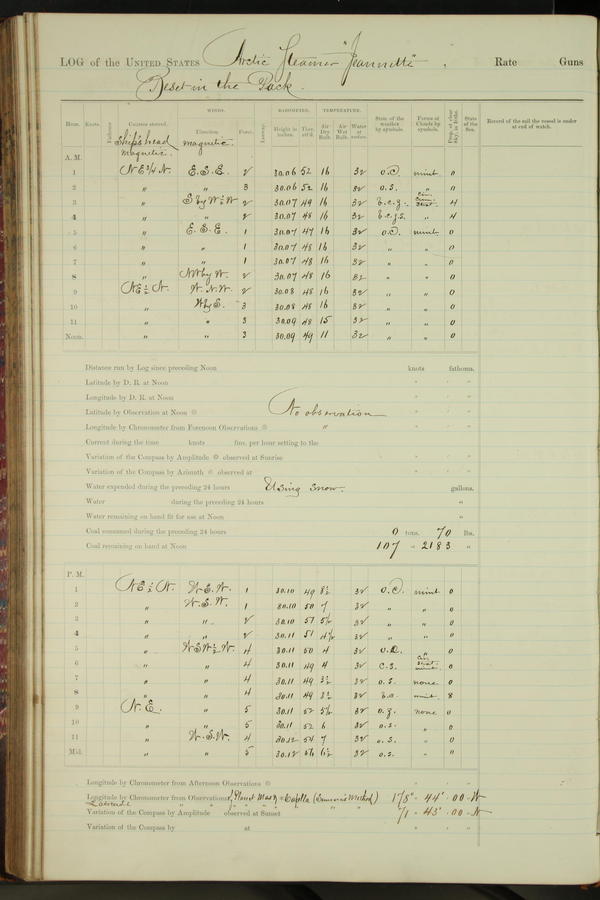 LOG of the UNITED STATES Arctic Steamer "Jeannette". Rate Guns
Beset in the Pack.
WINDS. BAROMETER. TEMPERATURE.
Hour. Knots. Courses steered. Direction. Force. Leeway. Height in inches. Ther. att'd. Air Dry Bulb. Air Wet Bulb. Water at surface. State of the weather by symbols. Forms of Clouds by symbols. Prop. of clear Sky, in 10ths. State of the Sea. Record of the sail the vessel is under at end of watch.
Ship's head magnetic.
magnetic.
A. M.
1 N E 3/4 N. E. S. E. 2 30.06 52 16 32 nimb. 0
2 " " 3 30.06 52 16 32 o.s. " 0
3 " 2 30.07 49 16 32 4
4 " " 2 30.07 48 16 32 " 4
5 " E. S. E. 1 30.07 47 16 32 nimb. 0
6 " " 1 30.07 48 16 32 " " 0
7 " " 1 30.07 48 16 32 " " 0
8 " NW by W. 2 30.07 48 16 32 " " 0
9 NE 1/2 N. W. N. W. 2 30.08 48 16 32 " " 0
10 " W by S. 3 30.08 48 16 32 " " 0
11 " " 3 30.09 48 15 32 " " 0
Noon. " " 3 30.09 49 11 32 " " 0
Distance run by Log since preceding Noon knots fathoms.
Latitude by D. R. at Noon
Longitude by D. R. at Noon
Latitude by Observation at Noon No observation
Longitude by Chronometer from Forenoon Observations "
Current during the time knots fms. per hour setting to the
Variation of the Compass by Amplitude observed at Sunrise
Variation of the Compass by Azimuth observed at
Water expended during the preceding 24 hours Using snow. gallons.
Water during the preceding 24 hours "
Water remaining on hand fit for use at Noon "
Coal consumed during the preceding 24 hours 0 tons. 70 lbs.
Coal remaining on hand at Noon 107 " 2183 "
P. M.
1 NE 1/2 N. 1 30.10 49 8 1/2 32 nimb. 0
2 " W. S. W. 1 30.10 50 7 32 " " 0
3 " " 2 30.10 51 5 1/2 32 " " 0
4 " " 2 30.11 51 4 1/2 32 " " 0
5 " WSW 1/2 W. 4 30.11 50 4 32 " 0
6 " " 4 30.11 49 4 32 0
7 " " 4 30.11 49 3 1/2 32 o.s. none 0
8 " " 4 30.11 49 3 1/2 32 8
9 N. E. " 5 30.11 52 5 1/2 32 none 0
10 " " 5 30.11 52 6 32 o.s. " 0
11 " W. S. W. 4 30.12 54 7 32 o.s. " 0
Mid. " " 5 30.12 56 6 1/2 32 o.s. " 0
Longitude by Chronometer from Afternoon Observations
Longitude by Chronometer from Observations of Planet Mars & Capella (Sumner's Method) 178° - 44' - 00 - W
Latitude " " " " " " 71 - 43' - 00 - N
Variation of Compass by Amplitude observed at Sunset
Variation of the Compass by at